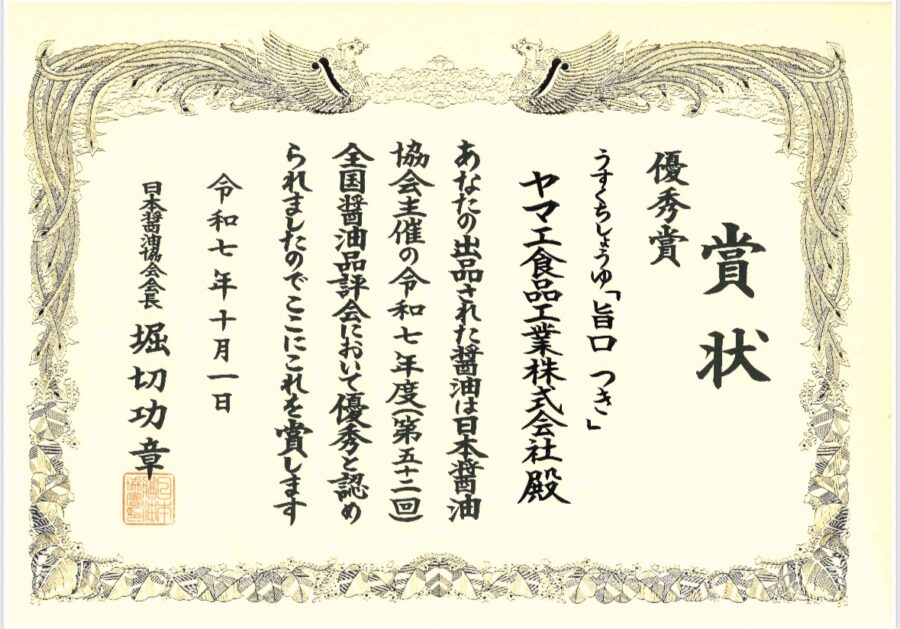 賞状
優秀賞
うすくちしょうゆ「旨口 つき」
ヤマエ食品工業株式会社 殿
あなたの出品された醤油は日本醤油
協会主催の令和七年度(第五十二回)
全国醤油品評会において優秀と認め
られましたのでここにこれを賞します
令和七年十月一日
日本醤油協会会長 堀切功章